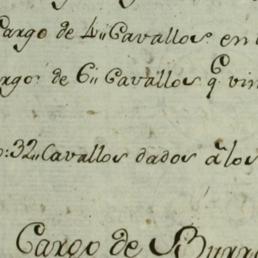 Cargo de 4,, Cavallos. en
argo. de 6,, Cavallos q.e vin
o: 32,, Cavallos dados a los
Cargo de Burr